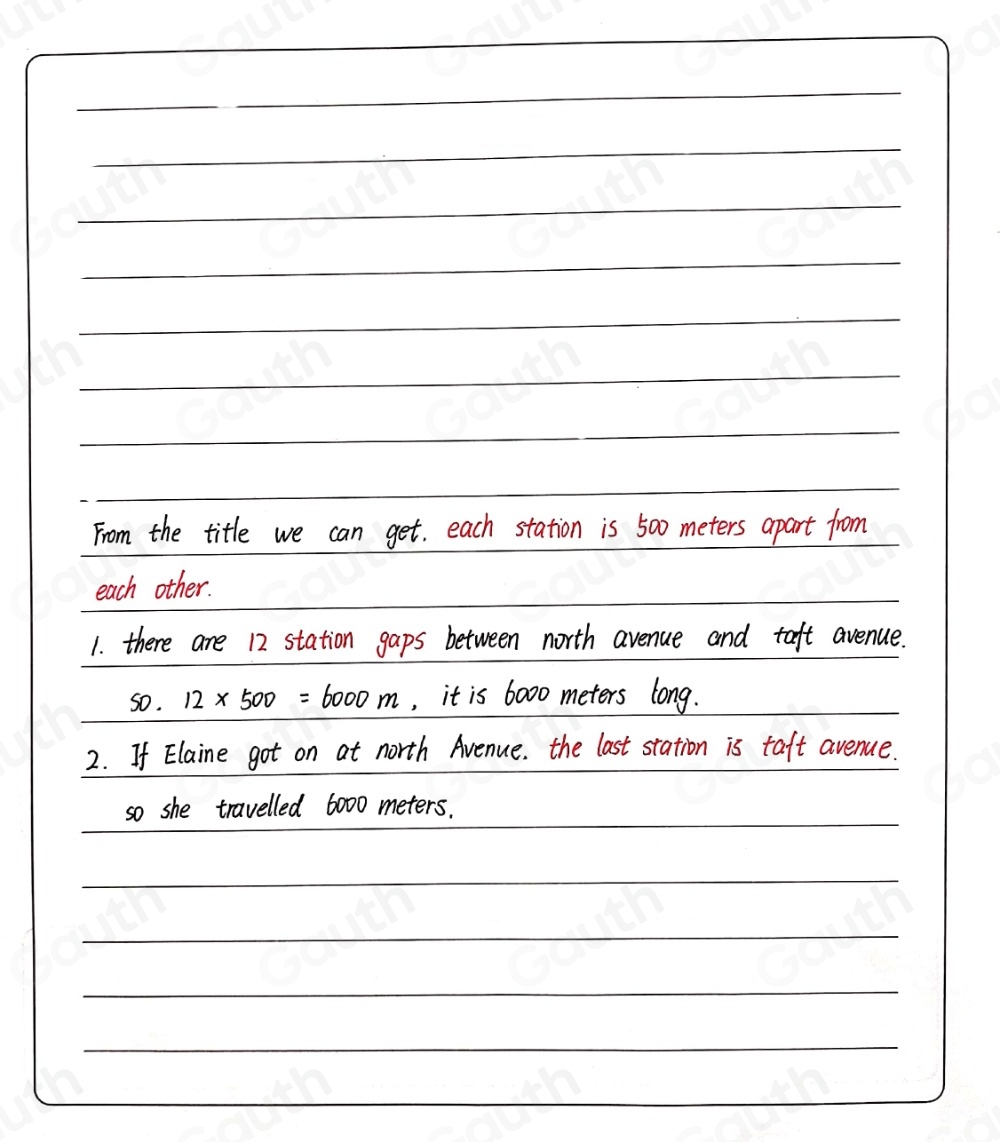 From the title we can get. each station is 500 meters apart from
each other.
1. there are 12 station gaps between north avenue and taft avenue.
so. 12 × 500 = 6000 m, it is 6000 meters long.
2. If Elaine got on at north Avenue. the last station is taft avenue.
so she travelled 6000 meters.